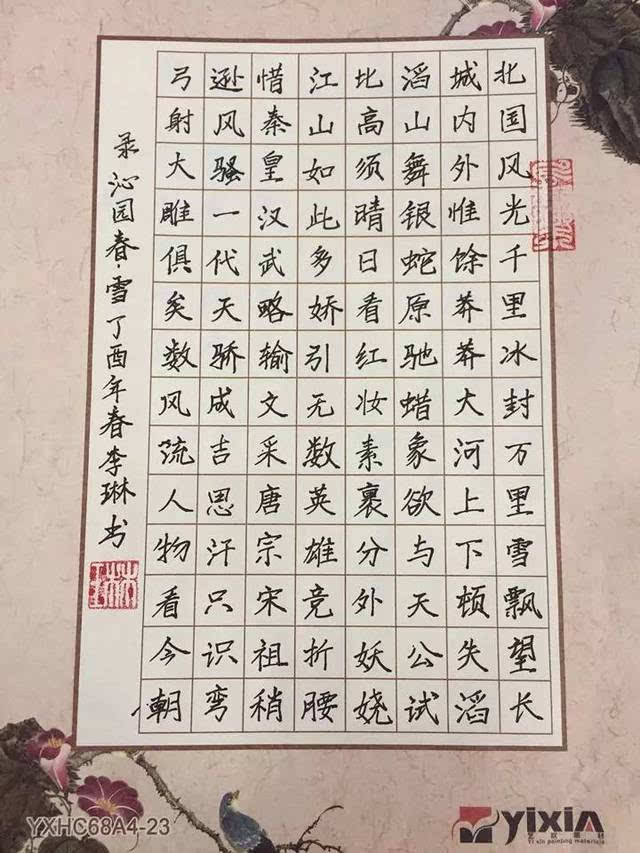 北国风光千里冰封万里雪飘望长
城内外惟馀莽莽大河上下顿失滔
滔山舞银蛇原驰蜡象欲与天公试
比高须晴日看红妆素裹分外妖娆
江山如此多娇引无数英雄竞折腰
惜秦皇汉武略输文采唐宗宋祖稍
逊风骚一代天骄成吉思汗只识弯
弓射大雕俱矣数风流人物看今朝
录沁园春·雪丁酉年春李琳书
YXHC68A4-23
yixin
Yi xin painting materials